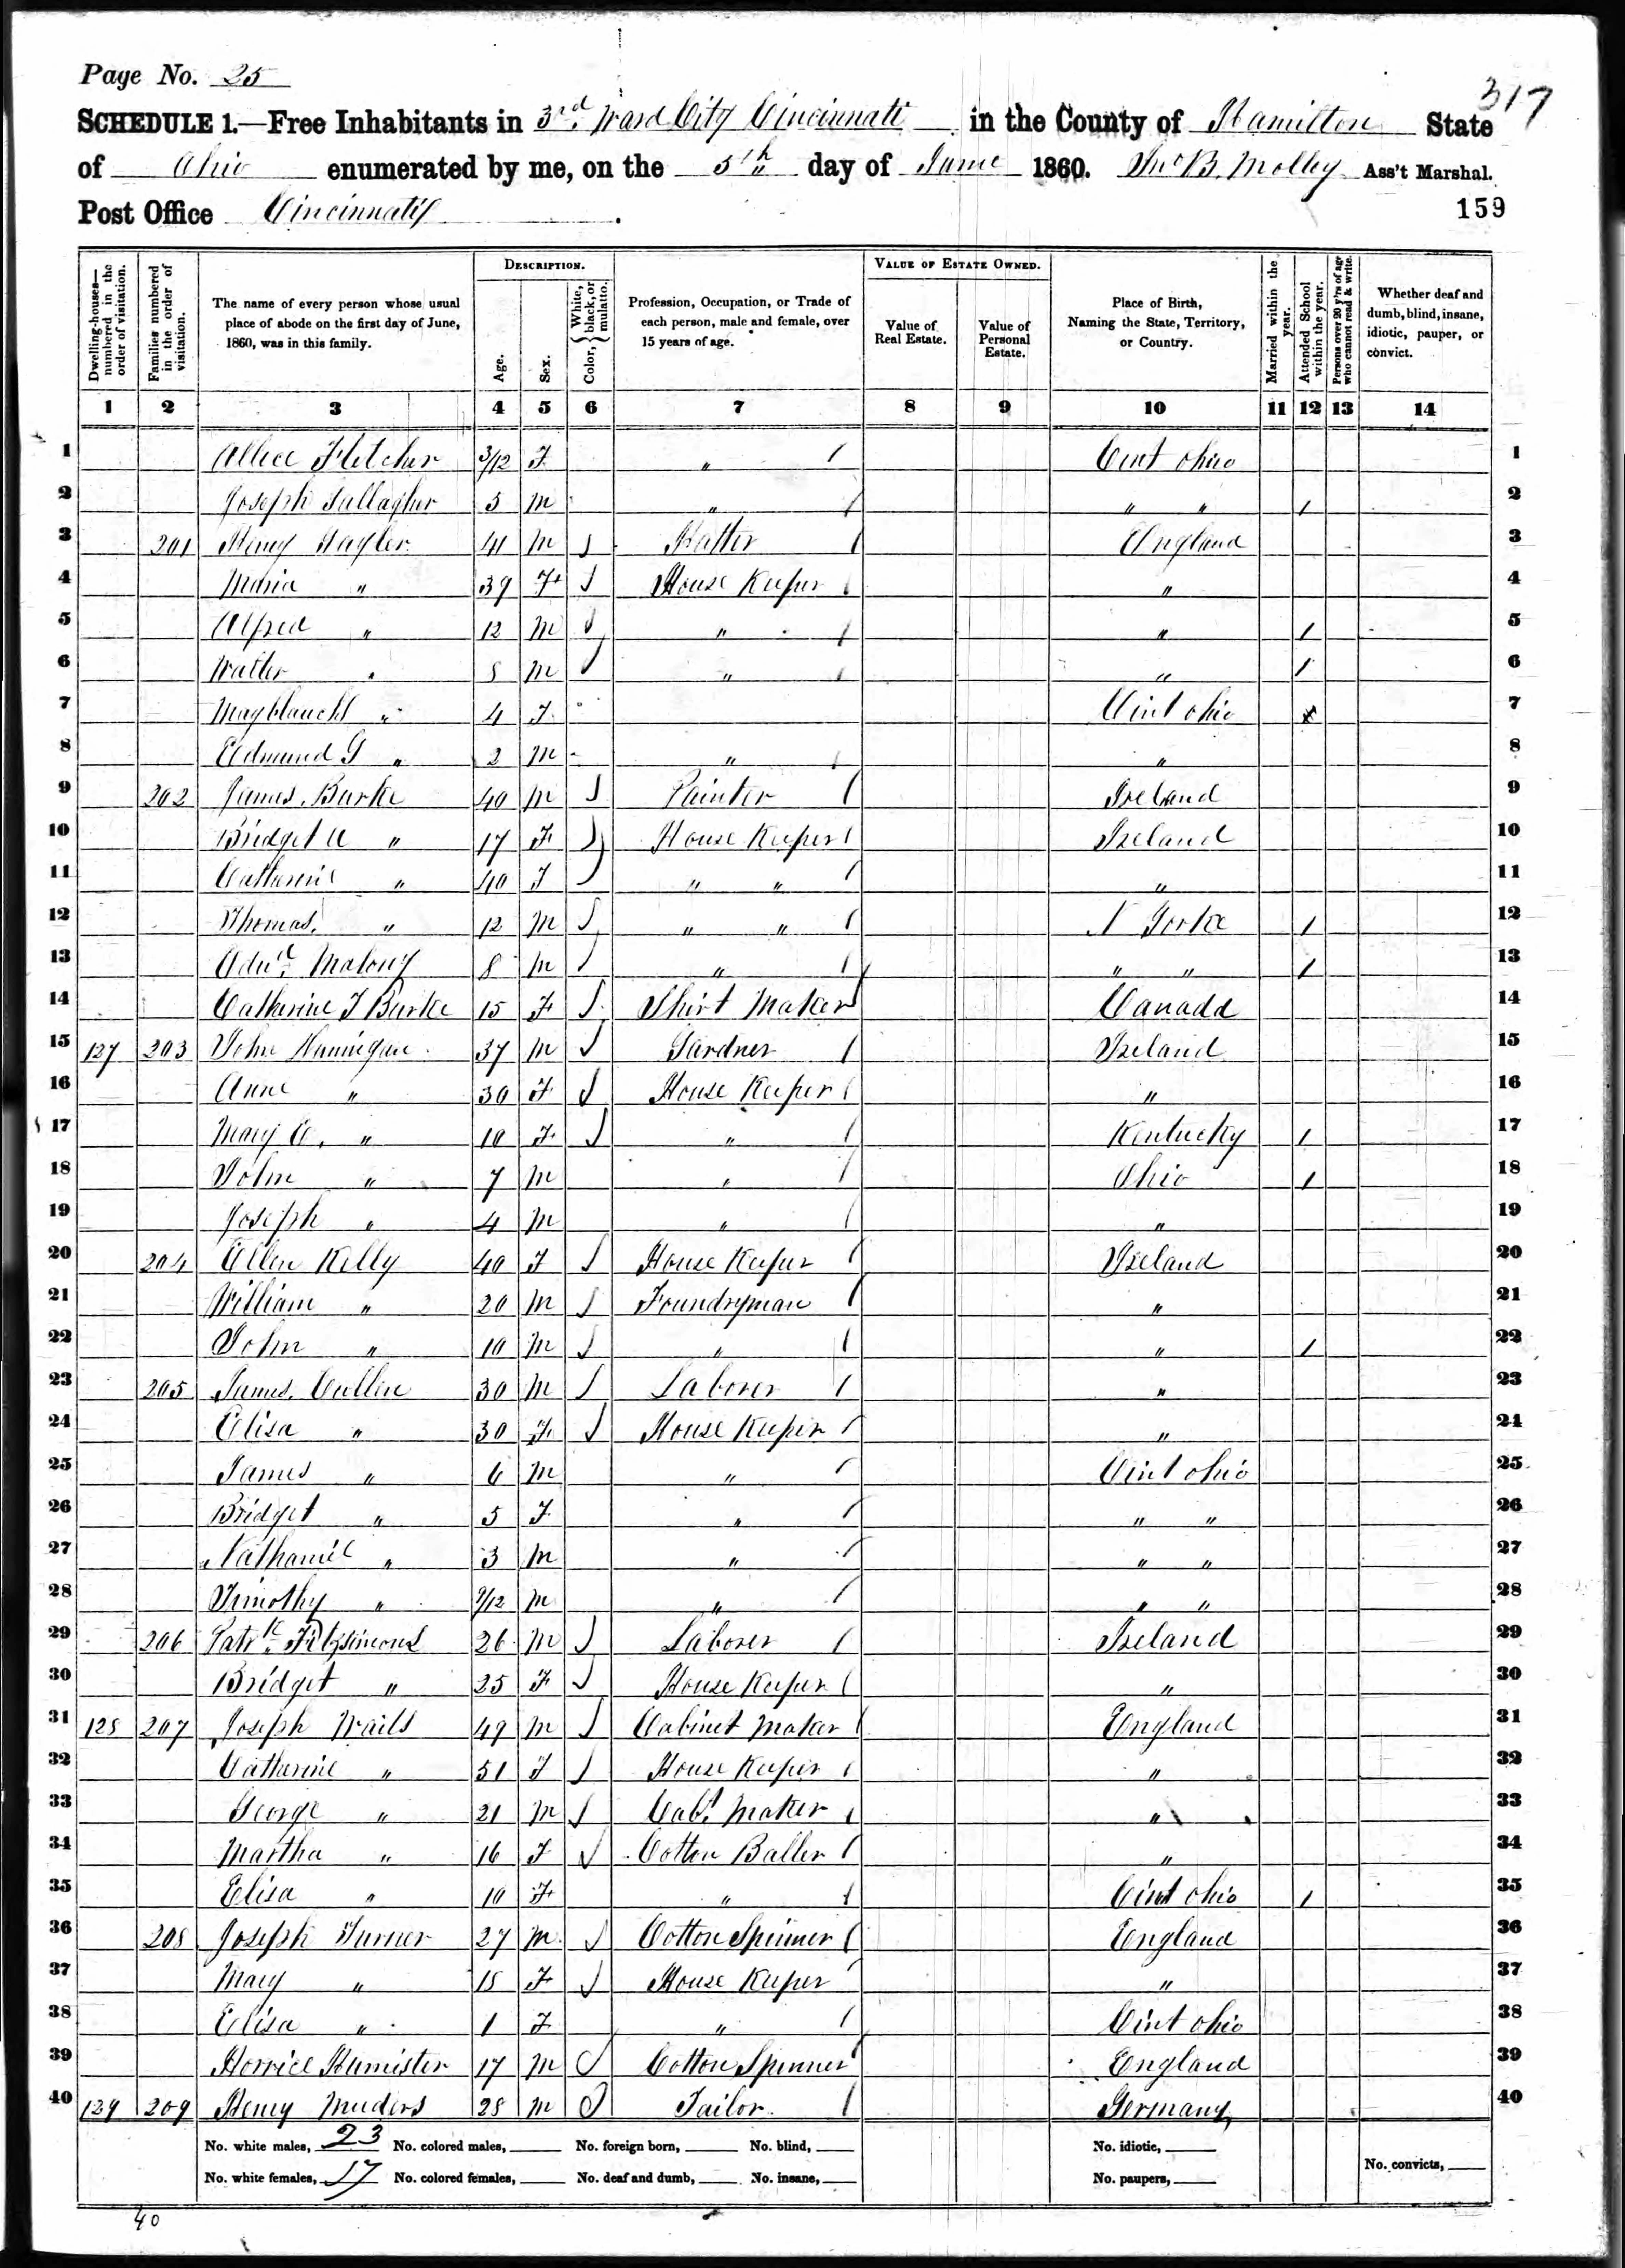 Page No. 25
317
SCHEDULE 1.—Free Inhabitants in 3rd Ward City Cincinnati in the County of Hamilton State
of Ohio enumerated by me, on the 5th day of June 1860. Jno B. Molley Ass't Marshal.
Post Office Cincinnati
159
Dwelling-houses—numbered in the order of visitation.
Families numbered in the order of visitation.
The name of every person whose usual place of abode on the first day of June, 1860, was in this family.
DESCRIPTION.
Age.
Sex.
Color, { White, black, or mulatto.
Profession, Occupation, or Trade of each person, male and female, over 15 years of age.
VALUE OF ESTATE OWNED.
Value of Real Estate.
Value of Personal Estate.
Place of Birth, Naming the State, Territory, or Country.
Married within the year.
Attended School within the year.
Persons over 20 y'rs of age who cannot read & write.
Whether deaf and dumb, blind, insane, idiotic, pauper, or convict.
1 2 3 4 5 6 7 8 9 10 11 12 13 14
1 Allice Fletcher 3/12 F " Cint Ohio 1
2 Joseph Gallagher 5 M " " " / 2
3 201 Henry 41 M Hatter England 3
4 Maria " 39 F House Keeper " 4
5 Alfred " 12 M " " / 5
6 Walter " 8 M " " / 6
7 " 4 F Cint Ohio 7
8 Edmund G " 2 M " " 8
9 202 James Burke 40 M Painter Ireland 9
10 Bridget A " 17 F House Keeper Ireland 10
11 Catharine " 40 F " " " 11
12 Thomas " 12 M " " N Yorke / 12
13 Malony 8 M " " " / 13
14 Catharine F Burke 15 F Shirt Maker Canada 14
15 127 203 John Hannigan 37 M Gardner Ireland 15
16 Anne " 30 F House Keeper " 16
17 Mary A. " 10 F " Kentucky / 17
18 John " 7 M " Ohio / 18
19 Joseph " 4 M " " 19
20 204 Ellen Kelly 40 F House Keeper Ireland 20
21 William " 20 M Foundryman " 21
22 John " 10 M " " / 22
23 205 James Cullin 30 M Laborer " 23
24 Elisa " 30 F House Keeper " 24
25 James " 6 M " Cint Ohio 25
26 Bridget " 5 F " " " 26
27 Nathaniel " 3 M " " " 27
28 Timothy " 9/12 M " " " 28
29 206 Patrk Fitzsimons 26 M Laborer Ireland 29
30 Bridget " 25 F House Keeper " 30
31 128 207 Joseph Wails 49 M Cabinet Maker England 31
32 Catharine " 51 F House Keeper " 32
33 George " 21 M Cabt Maker " 33
34 Martha " 16 F Cotton Baller " 34
35 Elisa " 10 F " Cint Ohio / 35
36 208 Joseph Turner 27 M Cotton Spinner England 36
37 Mary " 18 F House Keeper " 37
38 Elisa " 1 F " Cint Ohio 38
39 17 M Cotton Spinner England 39
40 129 209 Henry Muders 28 M Tailor Germany 40
No. white males, 23 No. colored males, No. foreign born, No. blind, No. idiotic,
No. white females, 17 No. colored females, No. deaf and dumb, No. insane, No. paupers, No. convicts,
40